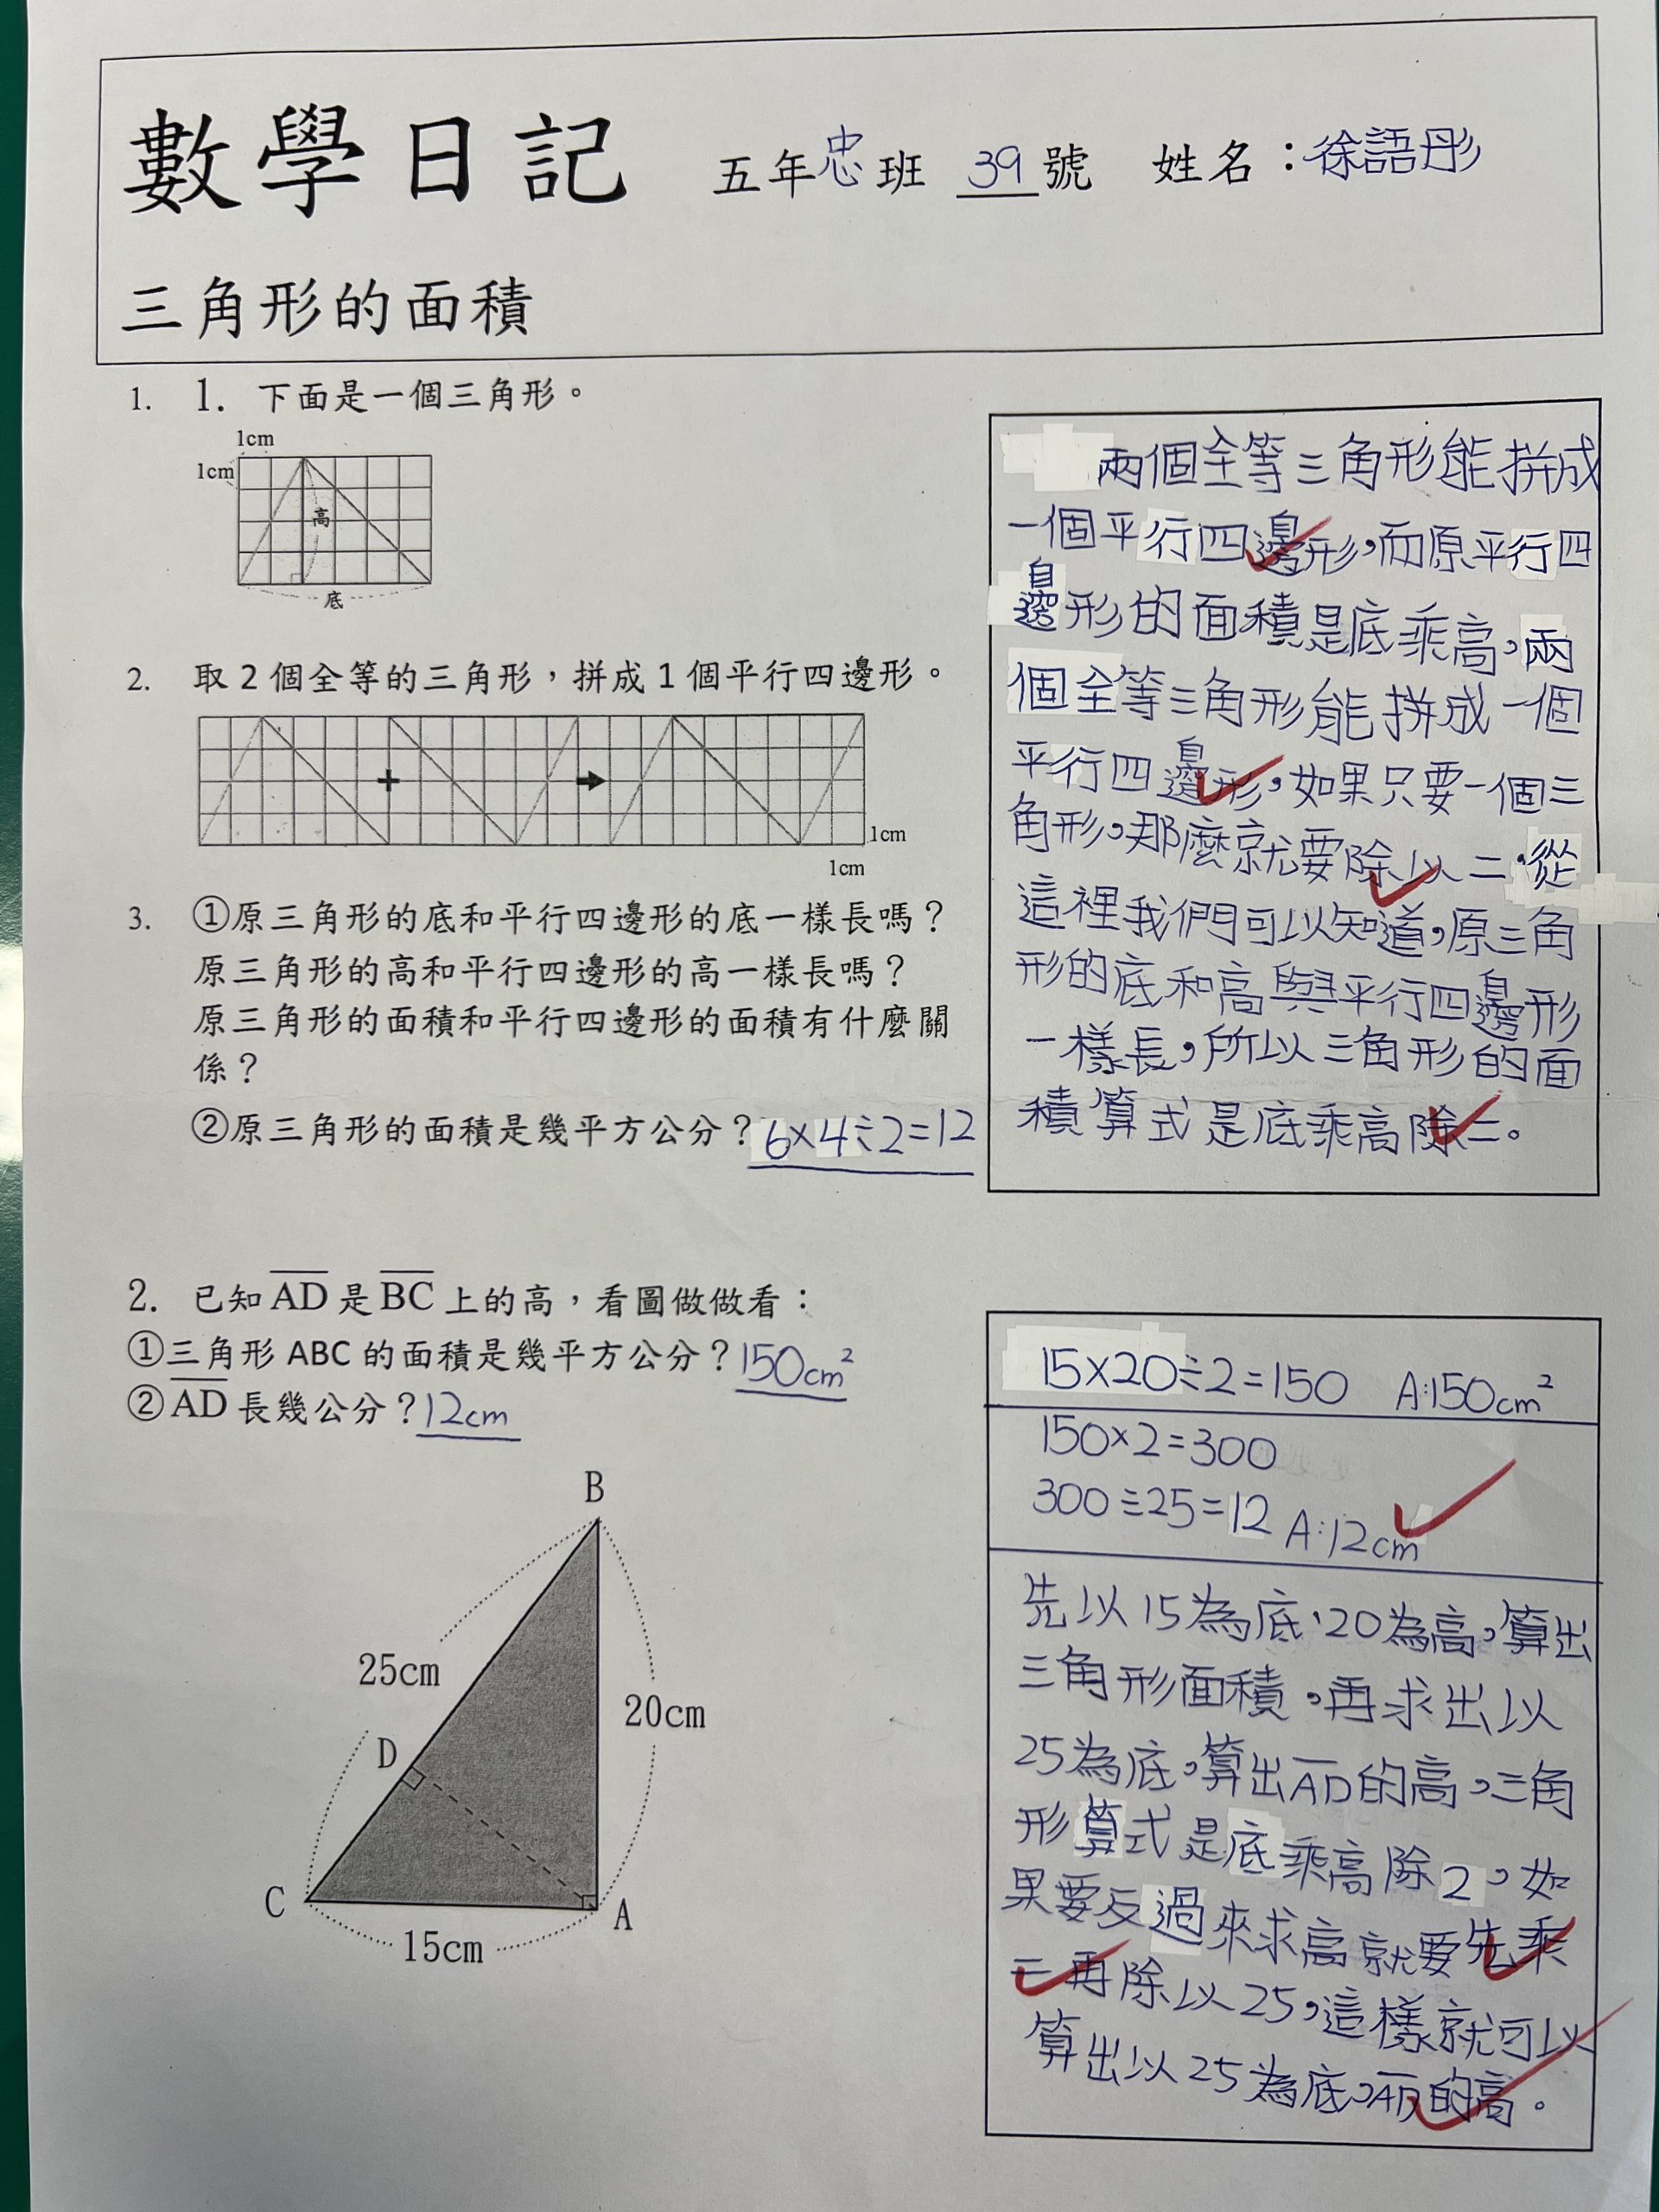 數學日記 五年忠班 39號 姓名：徐語彤
三角形的面積
1. 1. 下面是一個三角形。
1cm
1cm
高
底
2. 取2個全等的三角形，拼成1個平行四邊形。
+
1cm
1cm
3. ①原三角形的底和平行四邊形的底一樣長嗎？
原三角形的高和平行四邊形的高一樣長嗎？
原三角形的面積和平行四邊形的面積有什麼關
係？
②原三角形的面積是幾平方公分？6×4÷2=12
兩個全等三角形能拼成
一個平行四邊形，而原平行四
邊形的面積是底乘高，兩
個全等三角形能拼成一個
平行四邊形，如果只要一個三
角形，那麼就要除以二，從
這裡我們可以知道，原三角
形的底和高與平行四邊形
一樣長，所以三角形的面
積算式是底乘高除二。
2. 已知AD是BC上的高，看圖做做看：
①三角形ABC的面積是幾平方公分？150cm²
②AD長幾公分？12cm
B
25cm
20cm
D
C
A
15cm
15×20÷2=150 A:150cm²
150×2=300
300÷25=12 A:12cm
先以15為底，20為高，算出
三角形面積，再求出以
25為底，算出AD的高，三角
形算式是底乘高除2，如
果要反過來求高就要先乘
二再除以25，這樣就可以
算出以25為底，AD的高。